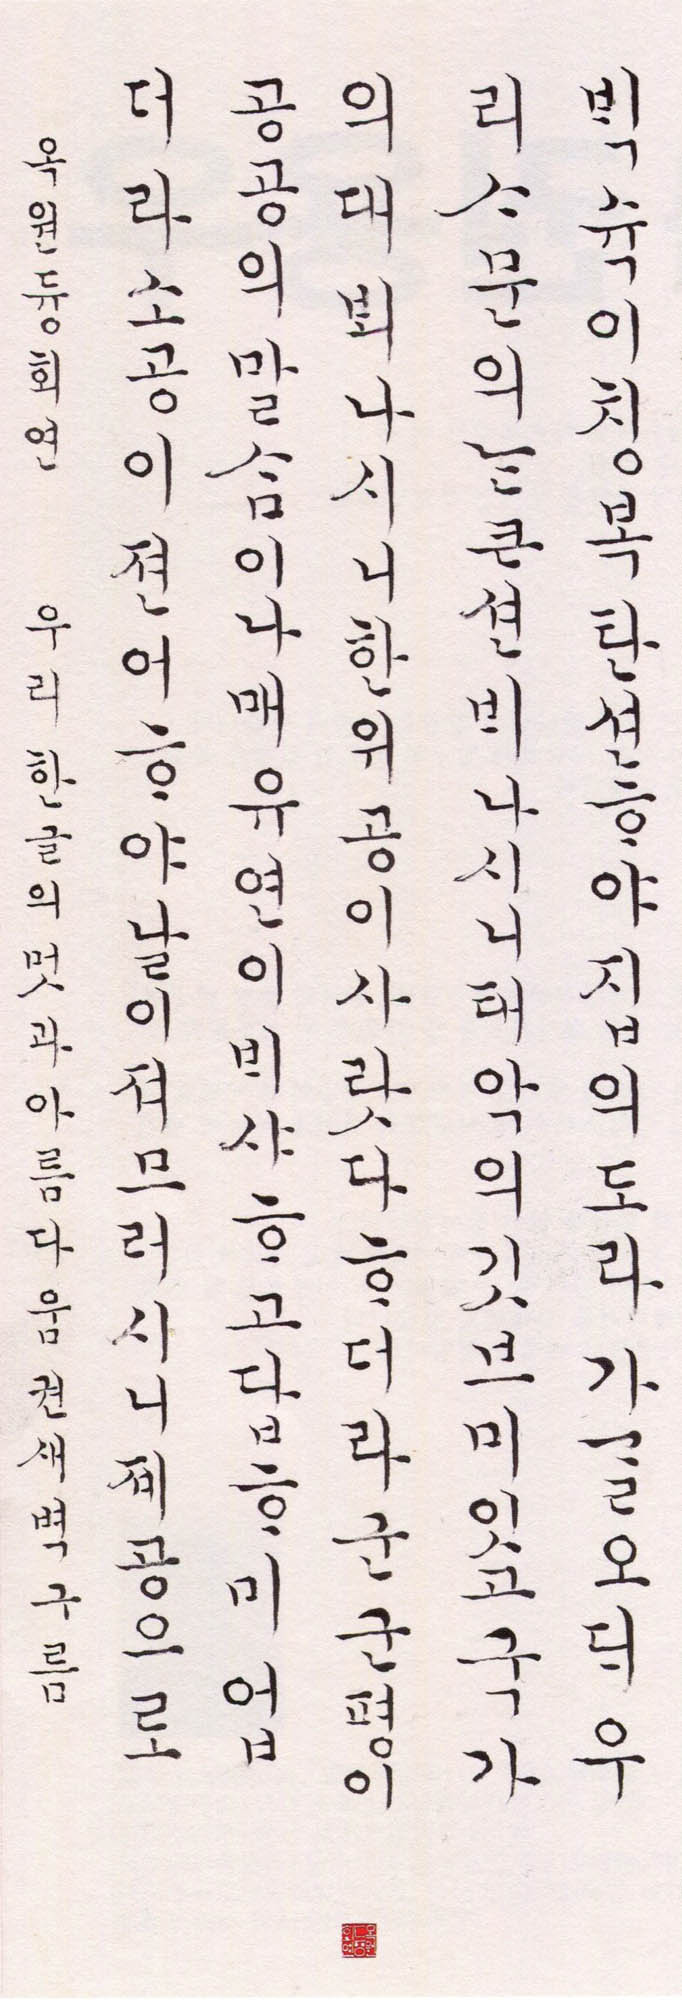 ᄇᆡᆨ슉이칭복탄션ᄒᆞ야집의도라가ᄀᆞᆯ오ᄃᆡ우
리ᄉᆞ문의ᄂᆞᆫ큰션ᄇᆡ나시니태악의깃브미잇고국가
의대ᄌᆡ나시니한위공이사랏다ᄒᆞ더라군군평이
공공의말ᄉᆞᆷ이나매유연이ᄇᆡ샤ᄒᆞ고답ᄒᆞ미업
더라소공이젼어ᄒᆞ야날이져므러시니졔공으로
옥원듕회연 우리한글의멋과아름다움권새벽구름